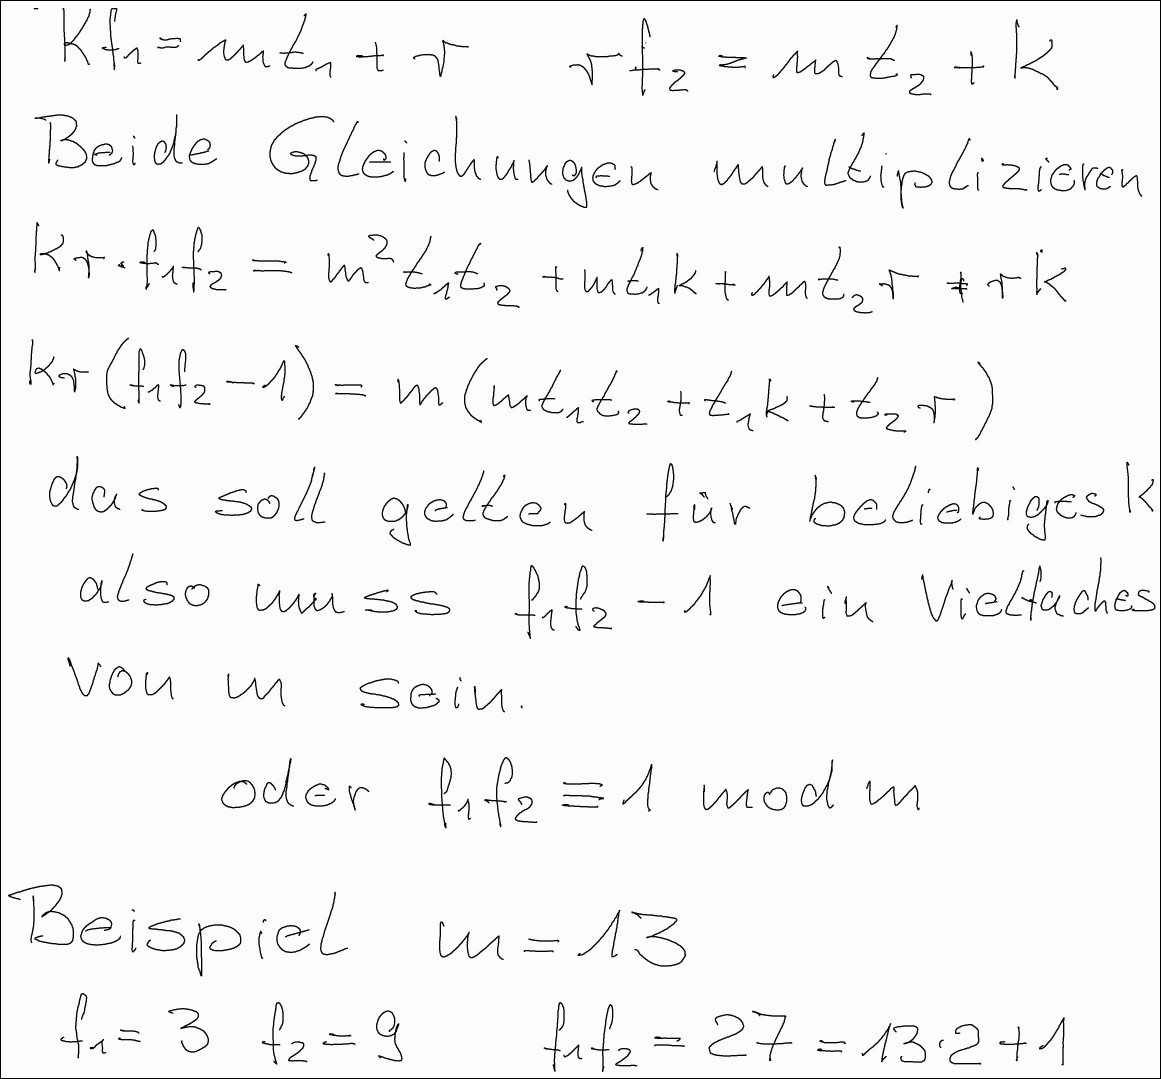 kf₁ = mt₁ + r rf₂ = mt₂ + k
Beide Gleichungen multiplizieren
kr·f₁f₂ = m²t₁t₂ + mt₁k + mt₂r + rk
kr(f₁f₂ − 1) = m(mt₁t₂ + t₁k + t₂r)
das soll gelten für beliebiges k
also muss f₁f₂ − 1 ein Vielfaches
von m sein.
oder f₁f₂ ≡ 1 mod m
Beispiel m = 13
f₁ = 3 f₂ = 9 f₁f₂ = 27 = 13·2 + 1